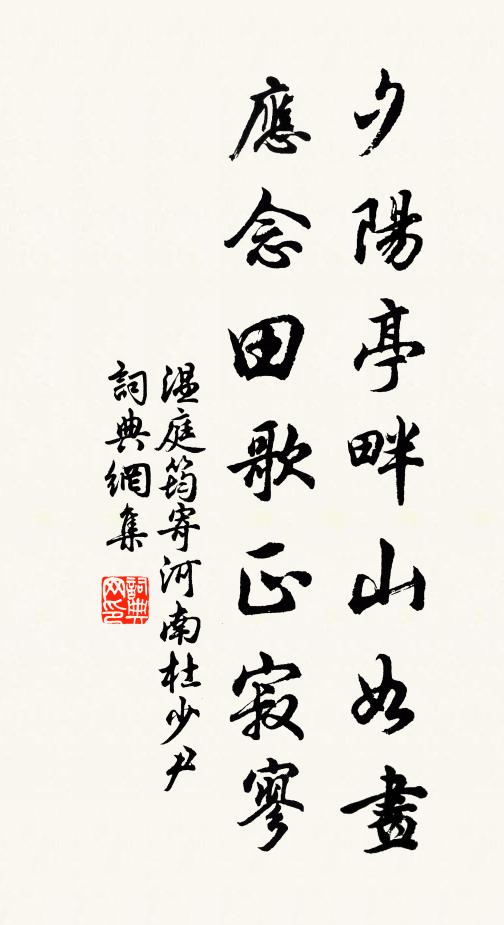 夕陽亭畔山如畫
應念田歌正寂寥
溫庭筠寄河南杜少尹
詞典網集
詞典網印